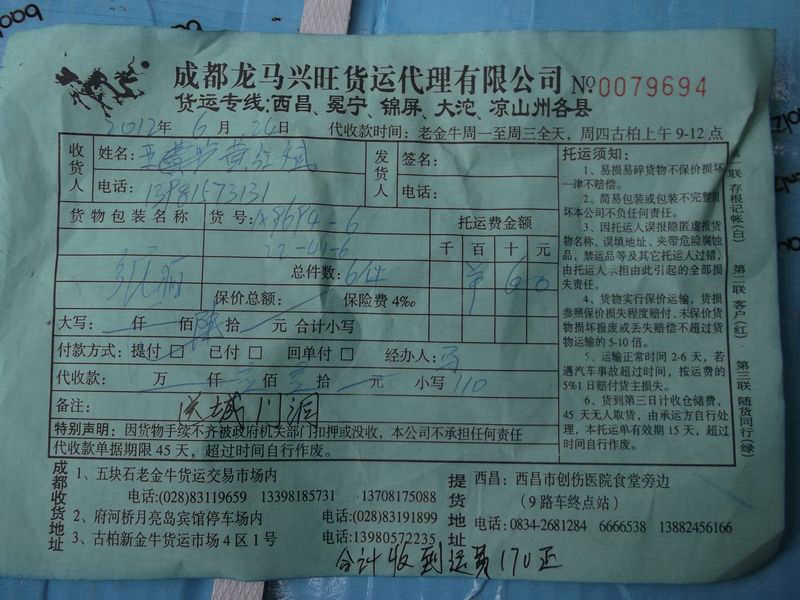 成都龙马兴旺货运代理有限公司 №0079694
货运专线:西昌、冕宁、锦屏、大沱、凉山州各县
2012年 6月 24日 代收款时间:老金牛周一至周三全天,周四古柏上午9-12点
收货人 姓名: 发货人 签名:
电话:13981573131 电话:
货物包装名称 货号: 8684-6 托运费金额
千 百 十 元
总件数:6件
60
保价总额: 保险费4‰
大写: 仟 佰 陆 拾 元 合计小写
付款方式:提付 □ 已付 □ 回单付 □ 经办人:
代收款: 万 仟 壹 佰 壹 拾 元 小写 110
备注:
特别声明:因货物手续不齐被政府机关部门扣押或没收,本公司不承担任何责任
代收款单据期限45天,超过时间自行作废。
托运须知:
1、易损易碎货物不保价损坏
一律不赔偿。
2、简易包装或包装不完整损
坏本公司不负任何责任。
3、因托运人误报隐匿虚报货
物名称、误填地址、夹带危险腐蚀
品,禁运品等及其它托运人过错,
由托运人示担由此引起的全部损
失责任。
4、货物实行保价运输,货损
参照保价损失程度赔付,未保价货
物损坏报废或丢失赔偿不超过货
物运输的5-10倍。
5、运输正常时间2-6天,若
遇汽车事故超过时间,按运费的
5%1日赔付货主损失。
6、货到第三日计收仓储费,
45天无人取货,由承运方自行处
理,本托运单有效期15天,超过
时间自行作废。
一联 存根记帐(白) 第二联 客户(红) 第三联 随货同行(绿)
成都收货地址
1、五块石老金牛货运交易市场内
电话:(028)83119659 13398185731 13708175088
2、府河桥月亮岛宾馆停车场内 电话:(028)83191899
3、古柏新金牛货运市场4区1号 电话:13980572235
提货地址
西昌:西昌市创伤医院食堂旁边
(9路车终点站)
电话:0834-2681284 6666538 13882456166
合计收到运费170正